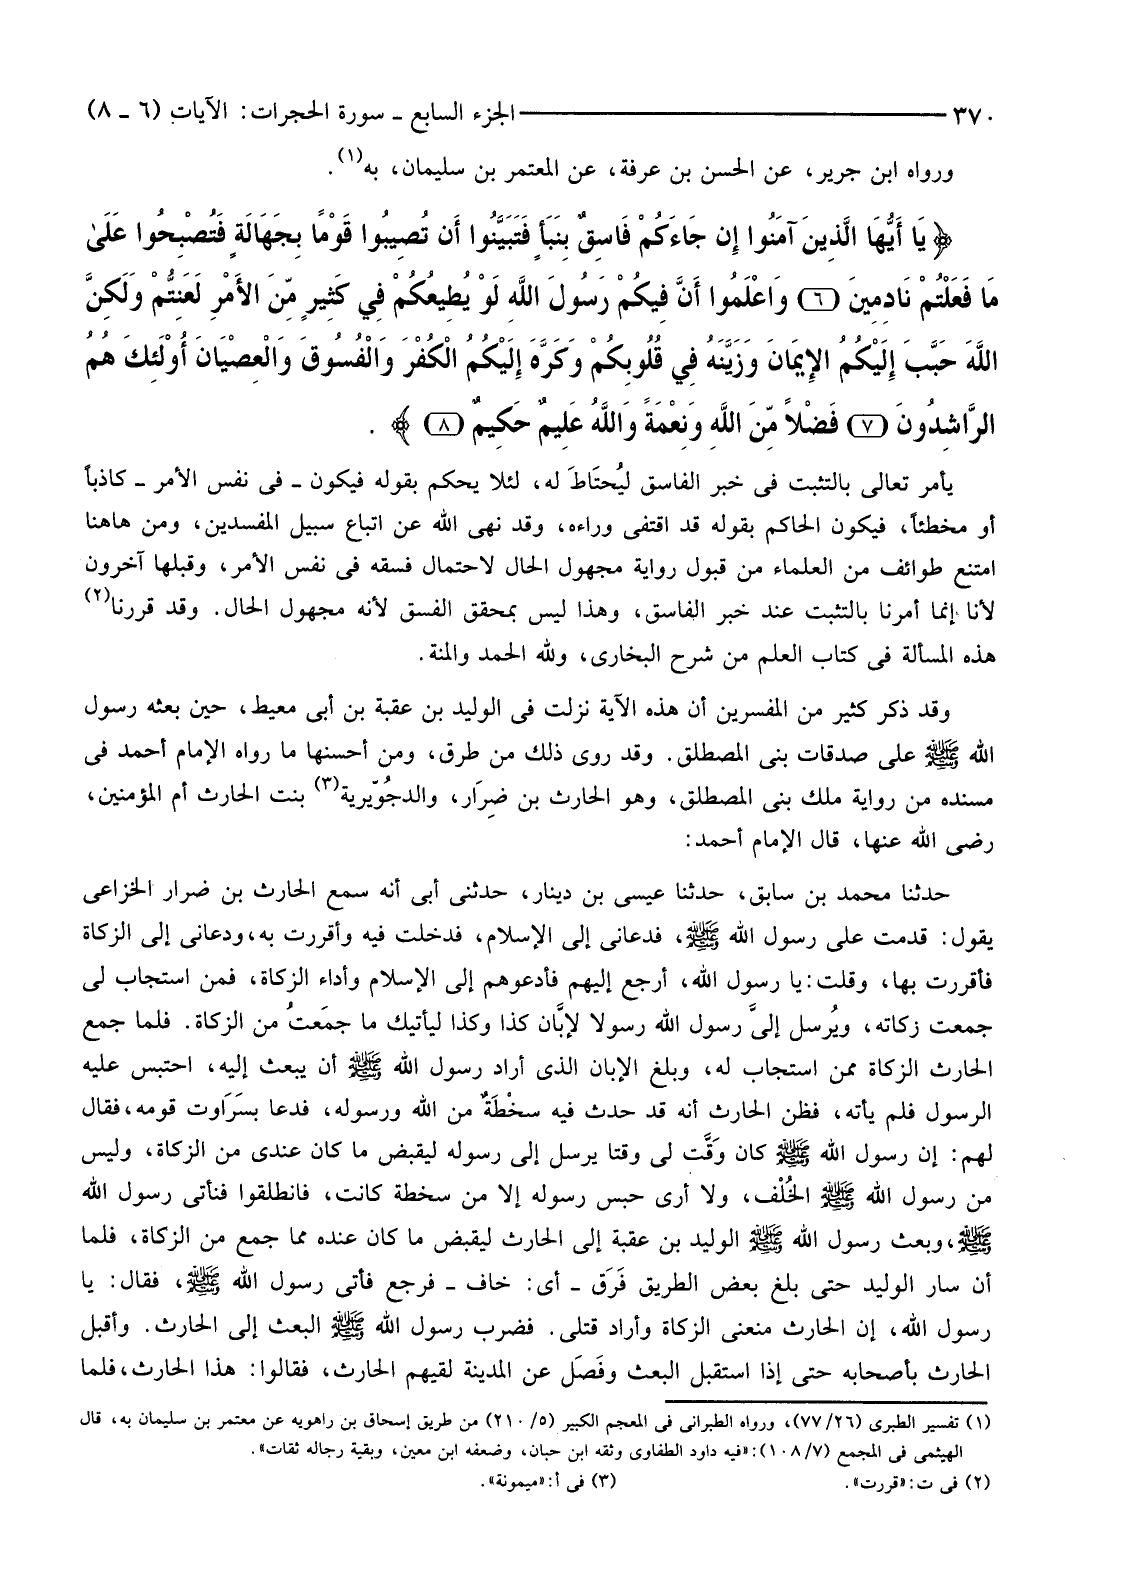 ٣٧٠ ـــــــــــــــــــــ الجزء السابع ـ سورة الحجرات: الآيات (٦ ـ ٨)
ورواه ابن جرير، عن الحسن بن عرفة، عن المعتمر بن سليمان، به(١).
﴿يَا أَيُّهَا الَّذِينَ آمَنُوا إِن جَاءَكُمْ فَاسِقٌ بِنَبَأٍ فَتَبَيَّنُوا أَن تُصِيبُوا قَوْمًا بِجَهَالَةٍ فَتُصْبِحُوا عَلَىٰ
مَا فَعَلْتُمْ نَادِمِينَ (٦) وَاعْلَمُوا أَنَّ فِيكُمْ رَسُولَ اللَّهِ لَوْ يُطِيعُكُمْ فِي كَثِيرٍ مِّنَ الأَمْرِ لَعَنِتُّمْ وَلَكِنَّ
اللَّهَ حَبَّبَ إِلَيْكُمُ الإِيمَانَ وَزَيَّنَهُ فِي قُلُوبِكُمْ وَكَرَّهَ إِلَيْكُمُ الْكُفْرَ وَالْفُسُوقَ وَالْعِصْيَانَ أُوْلَئِكَ هُمُ
الرَّاشِدُونَ (٧) فَضْلاً مِّنَ اللَّهِ وَنِعْمَةً وَاللَّهُ عَلِيمٌ حَكِيمٌ (٨)﴾ .
يأمر تعالى بالتثبت فى خبر الفاسق ليُحتَاطَ له، لئلا يحكم بقوله فيكون ـ فى نفس الأمر ـ كاذباً
أو مخطئاً، فيكون الحاكم بقوله قد اقتفى وراءه، وقد نهى الله عن اتباع سبيل المفسدين، ومن هاهنا
امتنع طوائف من العلماء من قبول رواية مجهول الحال لاحتمال فسقه فى نفس الأمر، وقبلها آخرون
لأنا إنما أمرنا بالتثبت عند خبر الفاسق، وهذا ليس بمحقق الفسق لأنه مجهول الحال. وقد قررنا(٢)
هذه المسألة فى كتاب العلم من شرح البخارى، ولله الحمد والمنة.
وقد ذكر كثير من المفسرين أن هذه الآية نزلت فى الوليد بن عقبة بن أبى معيط، حين بعثه رسول
الله ﷺ على صدقات بنى المصطلق. وقد روى ذلك من طرق، ومن أحسنها ما رواه الإمام أحمد فى
مسنده من رواية ملك بنى المصطلق، وهو الحارث بن ضِرَار، والدجُوَيرية(٣) بنت الحارث أم المؤمنين،
رضى الله عنها، قال الإمام أحمد:
حدثنا محمد بن سابق، حدثنا عيسى بن دينار، حدثنى أبى أنه سمع الحارث بن ضرار الخزاعى
يقول: قدمت على رسول الله ﷺ، فدعانى إلى الإسلام، فدخلت فيه وأقررت به،ودعانى إلى الزكاة
فأقررت بها، وقلت:يا رسول الله، أرجع إليهم فأدعوهم إلى الإسلام وأداء الزكاة، فمن استجاب لى
جمعت زكاته، ويُرسل إلىَّ رسول الله رسولا لإبَّان كذا وكذا ليأتيك ما جمَعتُ من الزكاة. فلما جمع
الحارث الزكاة ممن استجاب له، وبلغ الإبان الذى أراد رسول الله ﷺ أن يبعث إليه، احتبس عليه
الرسول فلم يأته، فظن الحارث أنه قد حدث فيه سخْطَةٌ من الله ورسوله، فدعا بسَرَاوت قومه،فقال
لهم: إن رسول الله ﷺ كان وَقَّت لى وقتا يرسل إلى رسوله ليقبض ما كان عندى من الزكاة، وليس
من رسول الله ﷺ الخُلْف، ولا أرى حبس رسوله إلا من سخطة كانت، فانطلقوا فنأتى رسول الله
ﷺ،وبعث رسول الله ﷺ الوليد بن عقبة إلى الحارث ليقبض ما كان عنده مما جمع من الزكاة، فلما
أن سار الوليد حتى بلغ بعض الطريق فَرَق ـ أى: خاف ـ فرجع فأتى رسول الله ﷺ، فقال: يا
رسول الله، إن الحارث منعنى الزكاة وأراد قتلى. فضرب رسول الله ﷺ البعث إلى الحارث. وأقبل
الحارث بأصحابه حتى إذا استقبل البعث وفَصَل عن المدينة لقيهم الحارث، فقالوا: هذا الحارث،فلما
(١) تفسير الطبرى (٢٦/ ٧٧)، ورواه الطبرانى فى المعجم الكبير (٥/ ٢١٠) من طريق إسحاق بن راهويه عن معتمر بن سليمان به، قال
الهيثمى فى المجمع (٧/ ١٠٨): «فيه داود الطفاوى وثقه ابن حبان، وضعفه ابن معين، وبقية رجاله ثقات».
(٢) فى ت: «قررت». (٣) فى أ: «ميمونة».